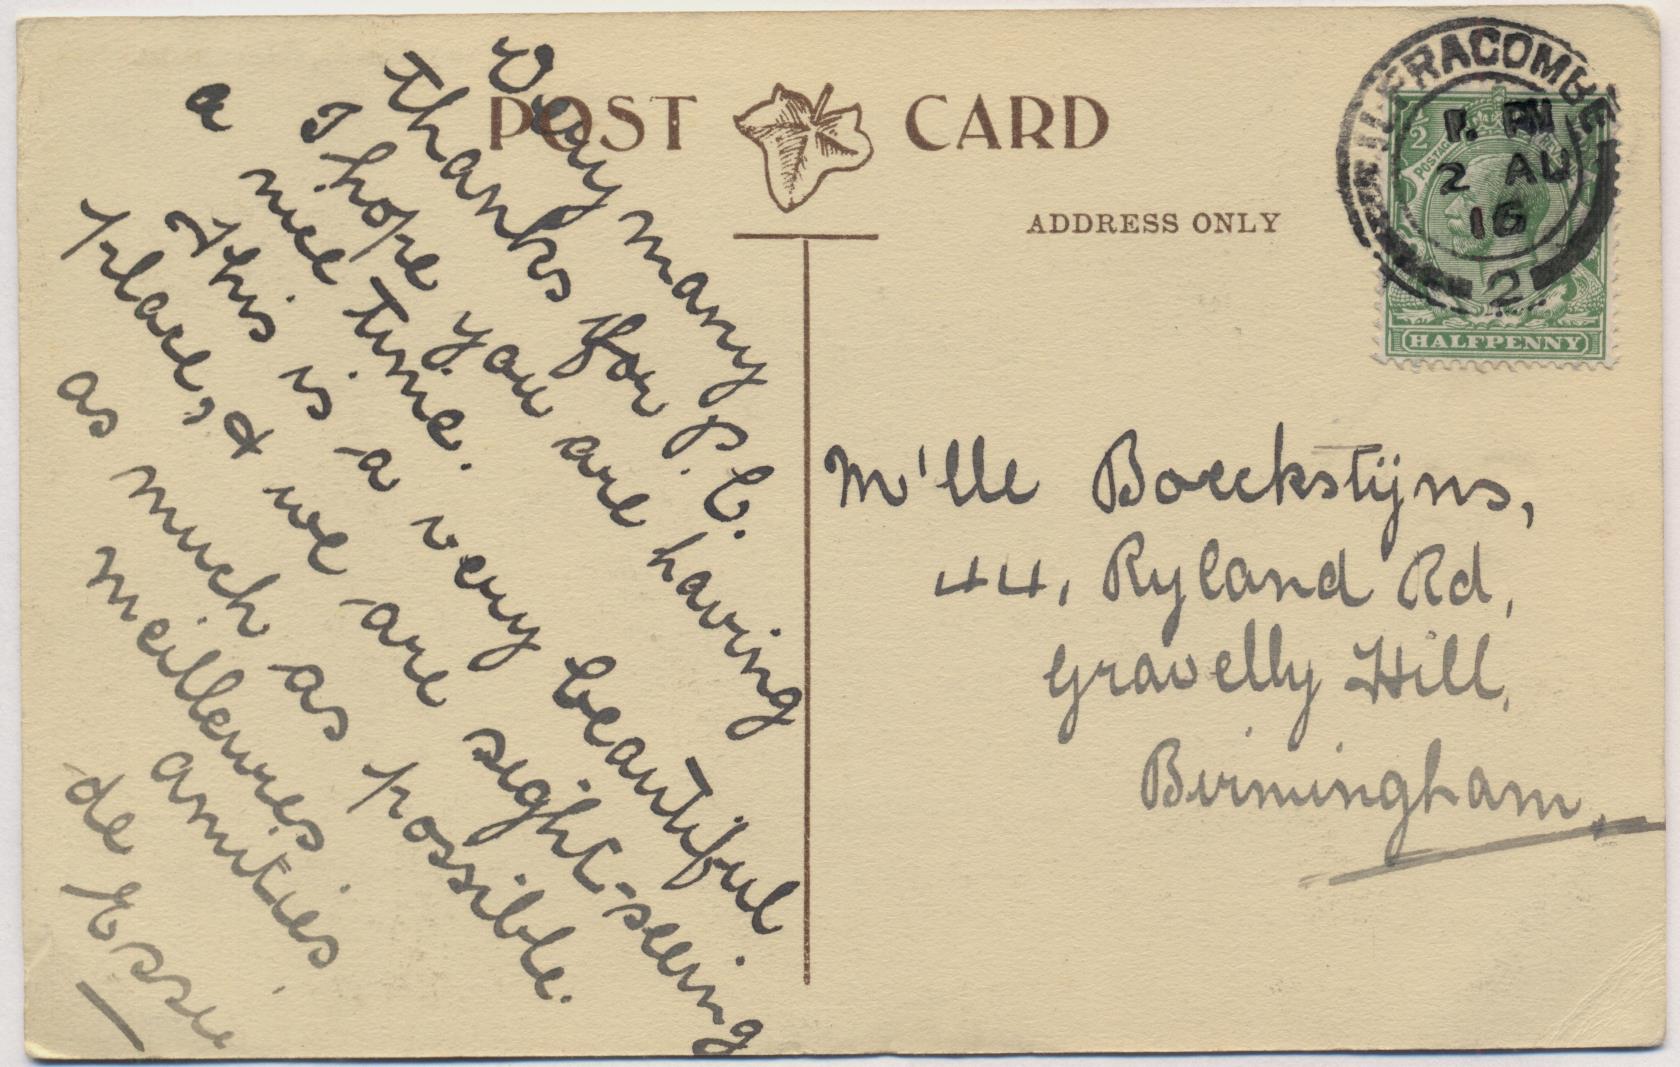 POST CARD
ADDRESS ONLY
ILFRACOMBE
1. PM
2 AU
16
2
1/2
POSTAGE
HALFPENNY
Very many
thanks for p.c.
I hope you are having
a nice time.
This is a very beautiful
place, & we are sight-seeing
as much as possible.
meilleures
amitiés
de Essie
M'lle Boeckstijns,
44, Ryland Rd,
Gravelly Hill,
Birmingham.